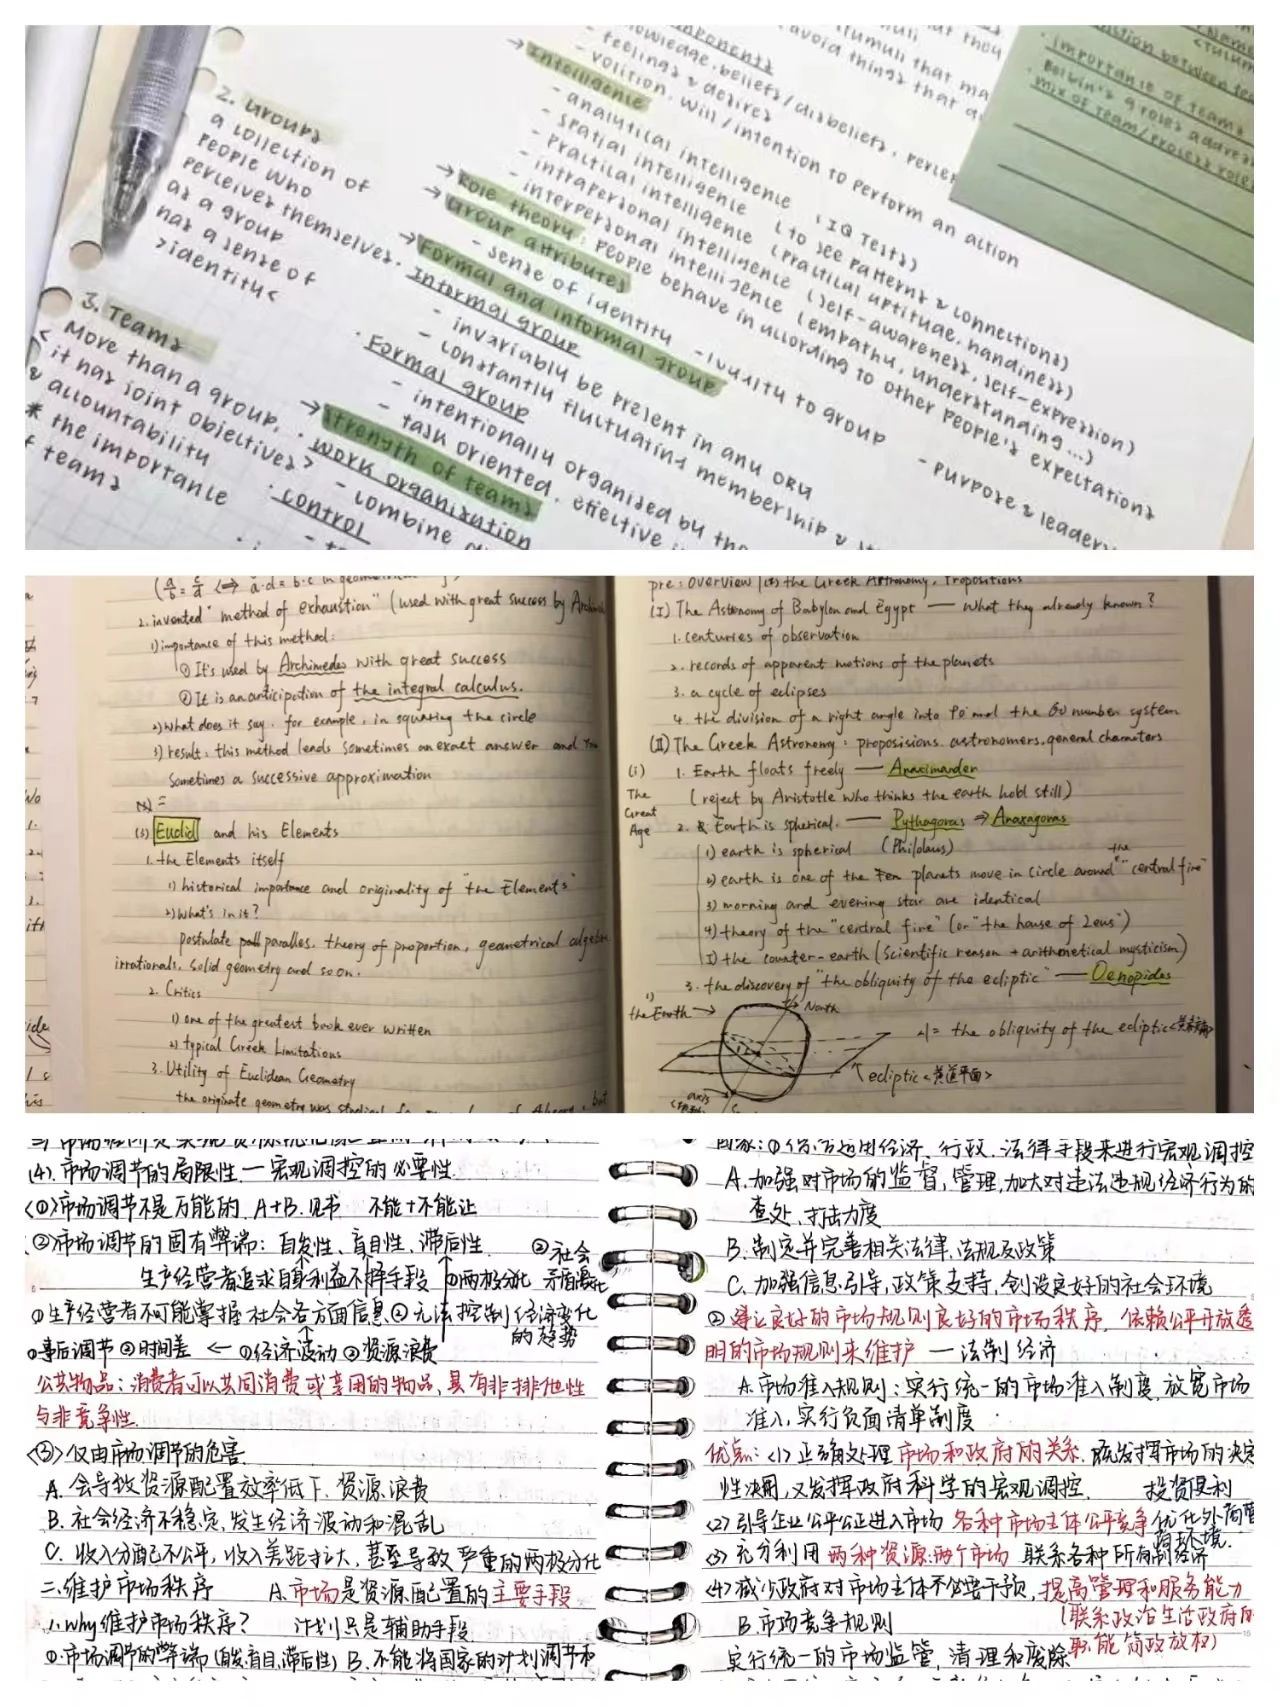 2. Groups
a collection of
people who
perceive themselves
as a group
has a sense of
>identity<
3. Teams
< More than a group.
it has joint objectives >
& accountability
* the importance
f teams
components
knowledge, beliefs/disbeliefs,
- feelings & desires
- volition, will/intention to perform an action
avoid things that
→ Intelligence
- analytical intelligence (IQ Tests)
- spatial intelligence (to see patterns & connections)
- practical intelligence (practical aptitude, handiness)
- intrapersonal intelligence (self-awareness, self-expression)
- interpersonal intelligence (empathy, understanding...)
→ Role theory: people behave in according to other people's expectations
→ Group attributes
- sense of identity - loyalty to group - purpose & leader
→ Formal and informal group
· Informal group
- invariably be present in any org
- constantly fluctuating membership &
· Formal group
- intentionally organised by the
- task oriented, effective
→ Strength of teams
· work organization
- combine
· control
Name
between
· importance of teams
· Belbin's 9 roles
mix of team/process roles
2. invented "method of exhaustion" (used with great success by
1) importance of this method:
① It's used by Archimedes with great success
② It is an anticipation of the integral calculus.
2) What does it say. for example, in squaring the circle
3) result: this method leads sometimes an exact answer and
sometimes a successive approximation
(3) Euclid and his Elements
1. the Elements itself
1) historical importance and originality of "the Elements"
2) What's in it?
postulate parallels, theory of proportion, geometrical algebra
irrationals, solid geometry and so on.
2. Critics
1) one of the greatest book ever written
2) typical Greek Limitations
3. Utility of Euclidean Geometry
pre: overview the Greek Astronomy, Propositions
(I) The Astronomy of Babylon and Egypt — what they already known?
1. centuries of observation
2. records of apparent motions of the planets
3. a cycle of eclipses
4. the division of a right angle into 90 and the 60 number system
(II) The Greek Astronomy: proposisions. astronomers. general characters
(i) 1. Earth floats freely — Anaximander
The (reject by Aristotle who thinks the earth hold still)
Great
Age 2. Earth is spherical. — Pythagoras ⇒ Anaxagoras
1) earth is spherical (Philolaus)
2) earth is one of the Ten planets move in circle around the "central fire"
3) morning and evening star are identical
4) theory of the "central fire" (or "the house of Zeus")
5) the counter-earth (scientific reason + arithmetical mysticism)
3. the discovery of "the obliquity of the ecliptic" — Oenopides
the Earth → North
= the obliquity of the ecliptic
ecliptic <黄道平面>
axis
(4). 市场调节的局限性 — 宏观调控的必要性.
<①>市场调节不是万能的. A+B. 见书 不能+不能让
②市场调节的固有弊端: 自发性、盲目性、滞后性. ②社会
生产经营者追求自身利益不择手段 ①两极分化 矛盾激化
①生产经营者不可能掌握社会各方面信息 ②无法控制经济变化
的趋势
①事后调节 ②时间差 ← ①经济波动 ②资源浪费
公共物品: 消费者可以共同消费或享用的物品, 具有非排他性
与非竞争性.
<③>仅由市场调节的危害
A. 会导致资源配置效率低下. 资源浪费
B. 社会经济不稳定, 发生经济波动和混乱
C. 收入分配不公平, 收入差距扩大, 甚至导致严重的两极分化
二. 维护市场秩序 A. 市场是资源配置的主要手段
1. why维护市场秩序? 计划只是辅助手段
①. 市场调节的弊端(自发,盲目,滞后性) B. 不能将国家的计划调节和
经济、行政、法律手段来进行宏观调控
A. 加强对市场的监督, 管理, 加大对违法违规经济行为的
查处、打击力度
B. 制定并完善相关法律、法规及政策
C. 加强信息引导, 政策支持, 创设良好的社会环境
② 建立良好的市场规则良好的市场秩序, 依赖公平开放透
明的市场规则来维护 — 法制经济
A. 市场准入规则: 实行统一的市场准入制度, 放宽市场
准入, 实行负面清单制度.
优点: <1> 正确处理市场和政府的关系. 既发挥市场的决定
性作用, 又发挥政府科学的宏观调控. 投资便利
<2> 引导企业公平公正进入市场 各种市场主体公平竞争 优化外商营
商环境.
<3> 充分利用两种资源两个市场 联系各种所有制经济
<4> 减少政府对市场主体不必要干预, 提高管理和服务能力
B. 市场竞争规则 (联系政治生活政府的
职能 简政放权)
实行统一的市场监管, 清理和废除